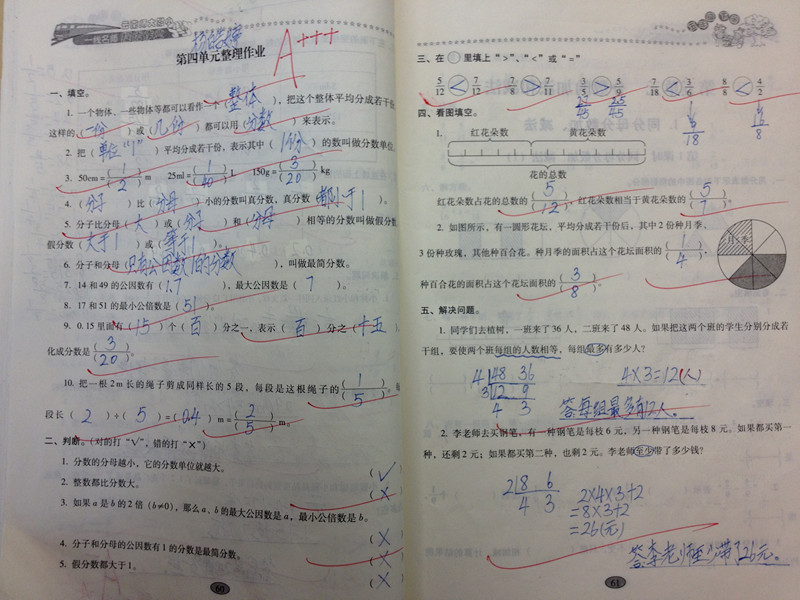 杨皓婷
第四单元整理作业
A+++
一、填空。
1. 一个物体、一些物体等都可以看作一个(整体),把这个整体平均分成若干份,
这样的(一份)或(几份)都可以用(分数)来表示。
2. 把(单位"1")平均分成若干份,表示其中(1份)的数叫做分数单位。
3. 50cm=(1/2)m 25ml=(1/40)L 150g=(3/20)kg
4. (分子)比(分母)小的分数叫真分数,真分数(都小于1)。
5. 分子比分母(大)或(分子)和(分母)相等的分数叫做假分数,
假分数(大于1)或(等于1)。
6. 分子和分母(只有公因数1的分数),叫做最简分数。
7. 14和49的公因数有(1.7),最大公因数是(7)。
8. 17和51的最小公倍数是(51)。
9. 0.15里面有(15)个(百)分之一,表示(百)分之(十五),
化成分数是(3/20)。
10. 把一根2m长的绳子剪成同样长的5段,每段是这根绳子的(1/5),每
段长(2)÷(5)=(0.4)m=(2/5)m。
二、判断。(对的打"√",错的打"×")
1. 分数的分母越小,它的分数单位就越大。(√)
2. 整数都比分数大。(×)
3. 如果a是b的2倍(b≠0),那么a、b的最大公因数是a,最小公倍数是b。
(×)
4. 分子和分母的公因数有1的分数是最简分数。(×)
5. 假分数都大于1。(×)
60
三、在○里填上">"、"<"或"="
5/12 < 7/12 7/8 > 7/11 3/5 > 5/9 7/18 < 3/6 8/8 < 4/2
27/45 25/45
四、看图填空。
1. 红花朵数 黄花朵数
花的总数
红花朵数占花的总数的(5/12),红花朵数相当于黄花朵数的(5/7)。
2. 如图所示,有一圆形花坛,平均分成若干份后,其中2份种月季,
3份种玫瑰,其他种百合花。种月季的面积占这个花坛面积的(1/4),
种百合花的面积占这个花坛面积的(3/8)。
月季
五、解决问题。
1. 同学们去植树,一班来了36人,二班来了48人。如果把这两个班的学生分别分成若
干组,要使两个班每组的人数相等,每组最多有多少人?
4 48 36
3 12 9
4 3
4×3=12(人)
答:每组最多有12人。
2. 李老师去买钢笔,有一种钢笔是每枝6元,另一种钢笔是每枝8元。如果都买第一
种,还剩2元;如果都买第二种,也剩2元。李老师至少带了多少钱?
2 8 6
4 3
2×4×3+2
=8×3+2
=26(元)
答:李老师至少带了26元。
61